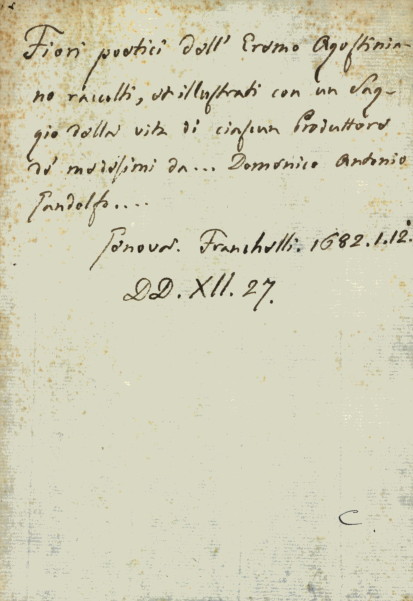 Fiori poetici dell' Eremo Agostinia-
no raccolti, et illustrati con un Sag-
gio della vita di ciascun Produttore
de' medesimi da... Domenico Antonio
Gandolfo....
Genova. Franchelli. 1682. 1. 12.°
DD. XII. 27.
C.